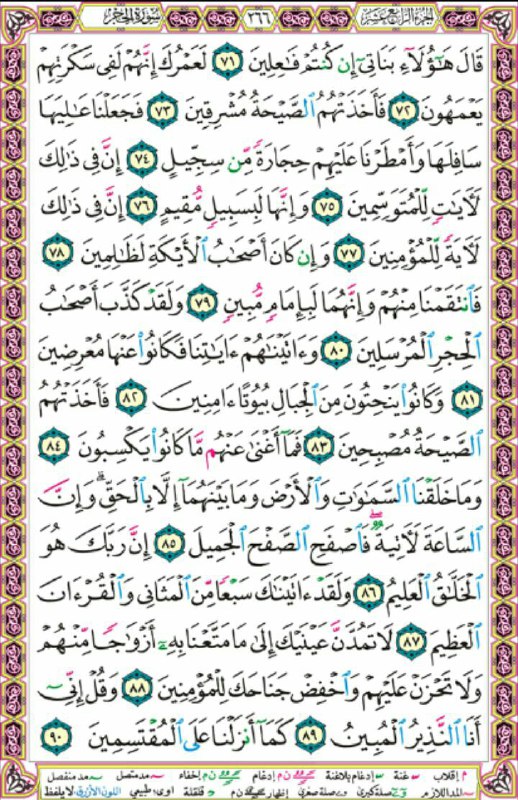 الجزء الرابع عشر ٢٦٦ سورة الحجر
قَالَ هَٰٓؤُلَآءِ بَنَاتِىٓ إِن كُنتُمْ فَٰعِلِينَ ٧١ لَعَمْرُكَ إِنَّهُمْ لَفِى سَكْرَتِهِمْ
يَعْمَهُونَ ٧٢ فَأَخَذَتْهُمُ ٱلصَّيْحَةُ مُشْرِقِينَ ٧٣ فَجَعَلْنَا عَٰلِيَهَا
سَافِلَهَا وَأَمْطَرْنَا عَلَيْهِمْ حِجَارَةً مِّن سِجِّيلٍ ٧٤ إِنَّ فِى ذَٰلِكَ
لَءَايَٰتٍ لِّلْمُتَوَسِّمِينَ ٧٥ وَإِنَّهَا لَبِسَبِيلٍ مُّقِيمٍ ٧٦ إِنَّ فِى ذَٰلِكَ
لَءَايَةً لِّلْمُؤْمِنِينَ ٧٧ وَإِن كَانَ أَصْحَٰبُ ٱلْأَيْكَةِ لَظَٰلِمِينَ ٧٨
فَٱنتَقَمْنَا مِنْهُمْ وَإِنَّهُمَا لَبِإِمَامٍ مُّبِينٍ ٧٩ وَلَقَدْ كَذَّبَ أَصْحَٰبُ
ٱلْحِجْرِ ٱلْمُرْسَلِينَ ٨٠ وَءَاتَيْنَٰهُمْ ءَايَٰتِنَا فَكَانُوا۟ عَنْهَا مُعْرِضِينَ
٨١ وَكَانُوا۟ يَنْحِتُونَ مِنَ ٱلْجِبَالِ بُيُوتًا ءَامِنِينَ ٨٢ فَأَخَذَتْهُمُ
ٱلصَّيْحَةُ مُصْبِحِينَ ٨٣ فَمَآ أَغْنَىٰ عَنْهُم مَّا كَانُوا۟ يَكْسِبُونَ ٨٤
وَمَا خَلَقْنَا ٱلسَّمَٰوَٰتِ وَٱلْأَرْضَ وَمَا بَيْنَهُمَآ إِلَّا بِٱلْحَقِّ ۗ وَإِنَّ
ٱلسَّاعَةَ لَءَاتِيَةٌ ۖ فَٱصْفَحِ ٱلصَّفْحَ ٱلْجَمِيلَ ٨٥ إِنَّ رَبَّكَ هُوَ
ٱلْخَلَّٰقُ ٱلْعَلِيمُ ٨٦ وَلَقَدْ ءَاتَيْنَٰكَ سَبْعًا مِّنَ ٱلْمَثَانِى وَٱلْقُرْءَانَ
ٱلْعَظِيمَ ٨٧ لَا تَمُدَّنَّ عَيْنَيْكَ إِلَىٰ مَا مَتَّعْنَا بِهِۦٓ أَزْوَٰجًا مِّنْهُمْ
وَلَا تَحْزَنْ عَلَيْهِمْ وَٱخْفِضْ جَنَاحَكَ لِلْمُؤْمِنِينَ ٨٨ وَقُلْ إِنِّىٓ
أَنَا ٱلنَّذِيرُ ٱلْمُبِينُ ٨٩ كَمَآ أَنزَلْنَا عَلَى ٱلْمُقْتَسِمِينَ ٩٠
م إقلاب غنة إدغام بلاغنة ن م إدغام ن م إخفاء مد متصل مد منفصل
المد اللازم صلة كبرى صلة صغرى إظهار ن م قلقلة اوى: طبيعي اللون الأزرق: لا يلفظ